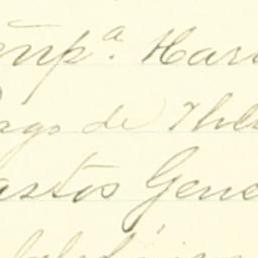 empª. Hari
ago de The
astos Gene